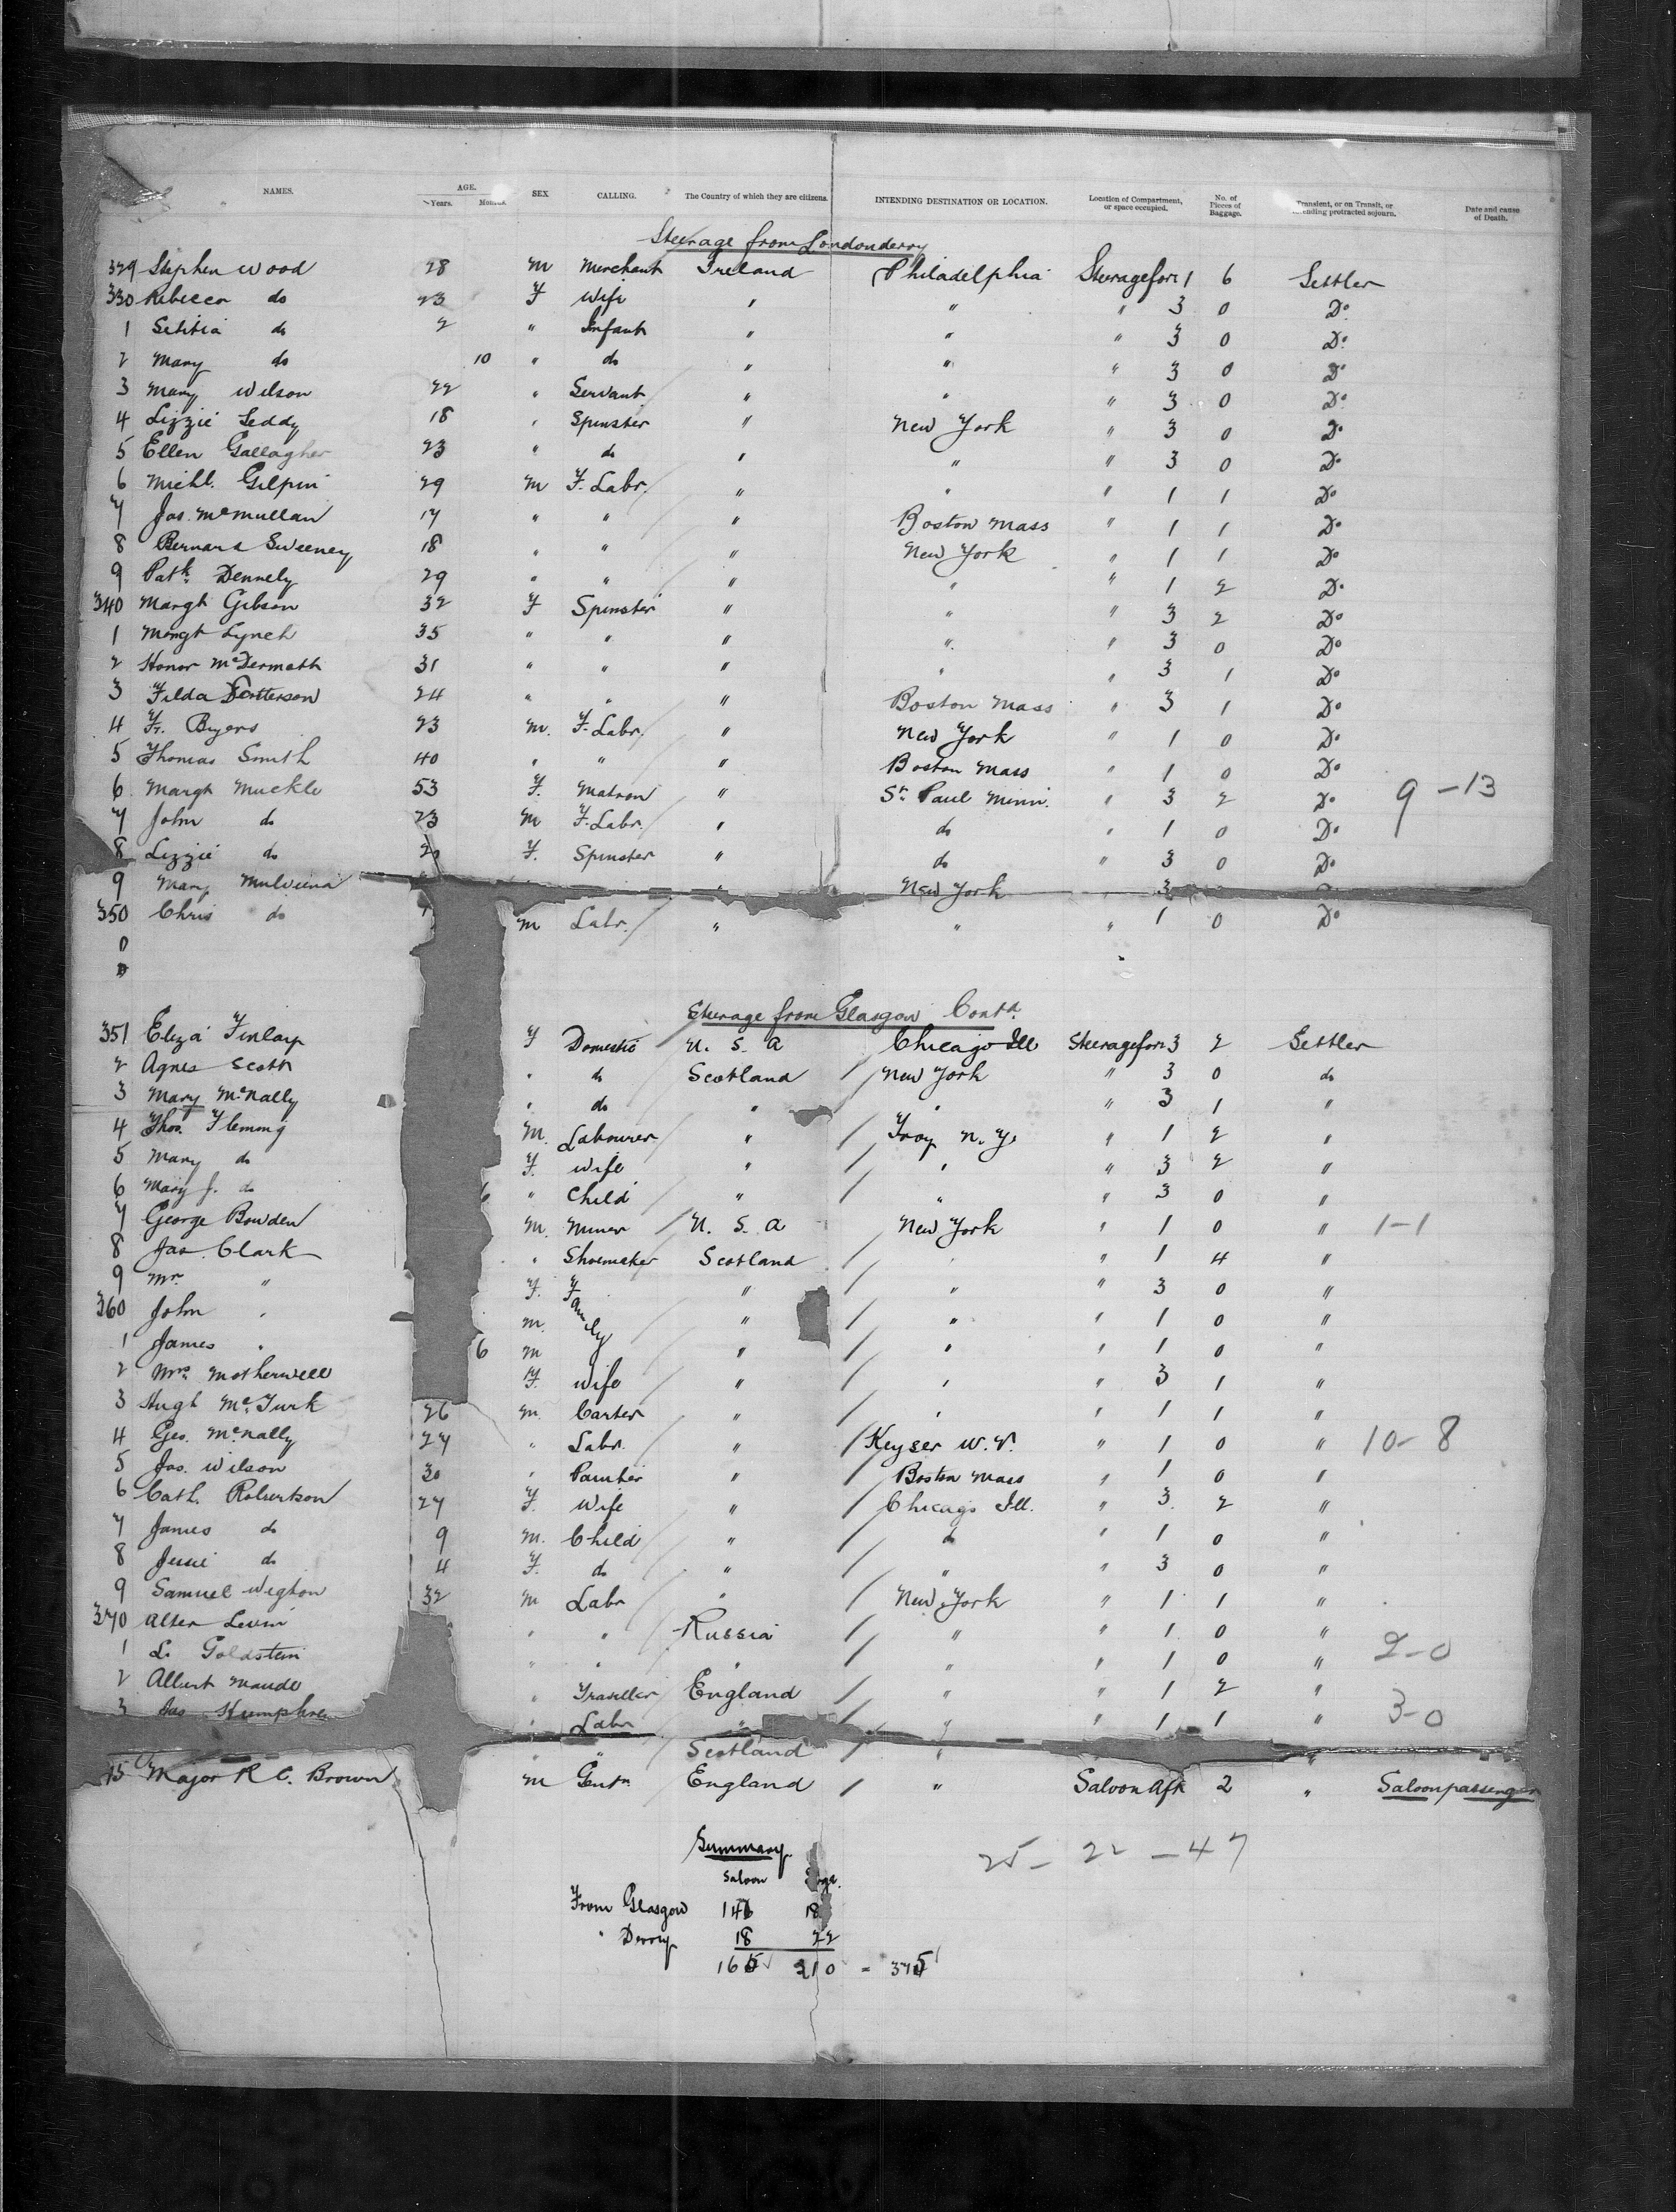 NAMES. AGE. Years. Months. SEX CALLING. The Country of which they are citizens. INTENDING DESTINATION OR LOCATION. Location of Compartment, or space occupied. No. of Pieces of Baggage. Transient, or on Transit, or intending protracted sojourn. Date and cause of Death.
Steerage from Londonderry
329 Stephen Wood 28 M Merchant Ireland Philadelphia Steerage for 1 6 Settler
330 Rebecca do 23 F Wife " " " 3 0 Do
1 Letitia do 2 " Infant " " " 3 0 Do
2 Mary do 10 " do " " " 3 0 Do
3 Mary Wilson 22 " Servant " " " 3 0 Do
4 Lizzie Leddy 18 " Spinster " New York " 3 0 Do
5 Ellen Gallagher 23 " do " " " 3 0 Do
6 Michl. Gilpin 29 M F. Labr. " " " 1 1 Do
7 Jas. McMullan 17 " " " Boston Mass " 1 1 Do
8 Bernard Sweeney 18 " " " New York " 1 1 Do
9 Patk. Dennely 29 " " " " " 1 2 Do
340 Margt Gibson 32 F Spinster " " " 3 2 Do
1 Margt Lynch 35 " " " " " 3 0 Do
2 Honor McDermott 31 " " " " " 3 1 Do
3 Tilda 24 " " " Boston Mass " 3 1 Do
4 Fr. Byers 23 M. F. Labr. " New York " 1 0 Do
5 Thomas Smith 40 " " " Boston Mass " 1 0 Do
6 Margt Muckle 53 F. Matron " St. Paul Minn. " 3 2 Do 9-13
7 John do 23 M F. Labr. " do " 1 0 Do
8 Lizzie do 20 F. Spinster " do " 3 0 Do
9 Mary Mulvenna " New York 3
350 Chris do M Labr. " " " 1 0 Do
Steerage from Glasgow Contd.
351 Eliza Finlay F Domestic U. S. A Chicago Ill Steerage for 3 2 Settler
2 Agnes Scott " do Scotland New York " 3 0 do
3 Mary McNally " do " " " 3 1 "
4 Thos. Fleming M. Labourer " Troy N. Y. " 1 2 "
5 Mary do F. Wife " " " 3 2 "
6 Mary J. do 6 " Child " " " 3 0 "
7 George Bowden M. Miner U. S. A New York " 1 0 " 1-1
8 Jas. Clark " Shoemaker Scotland " " 1 4 "
9 Mrs. " F. Family " " " 3 0 "
360 John " M. " " " 1 0 "
1 James " 6 M " " " 1 0 "
2 Mrs. Motherwell F. Wife " " " 3 1 "
3 Hugh McTurk 26 M. Carter " " " 1 1 "
4 Geo. McNally 27 " Labr. " Keyser W. V. " 1 0 " 10-8
5 Jas. Wilson 30 " Painter " Boston Mass " 1 0 "
6 Cath. Robertson 27 F. Wife " Chicago Ill. " 3 2 "
7 James do 9 M. Child " do " 1 0 "
8 Jessie do 4 F. do " " " 3 0 "
9 Samuel Wigton 32 M Labr " New York " 1 1 "
370 Alter Levin " " Russia " " 1 0 "
1 L. Goldstein " " " " " 1 0 " 2-0
2 Albert Maude " Traveller England " " 1 2 "
3 Jas Humphre " Labr " " " 1 1 " 3-0
" " Scotland "
75 Major R C. Brown M Gentn England " Saloon Aft 2 " Saloon passenger
Summary. 25 - 22 - 47
Saloon
From Glasgow 18
" Derry 18 22
165 210 = 375